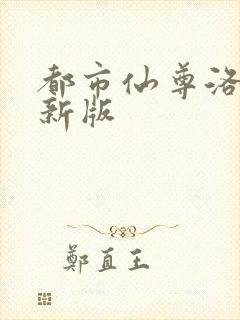 都市仙尊洛
新版
鄭直王